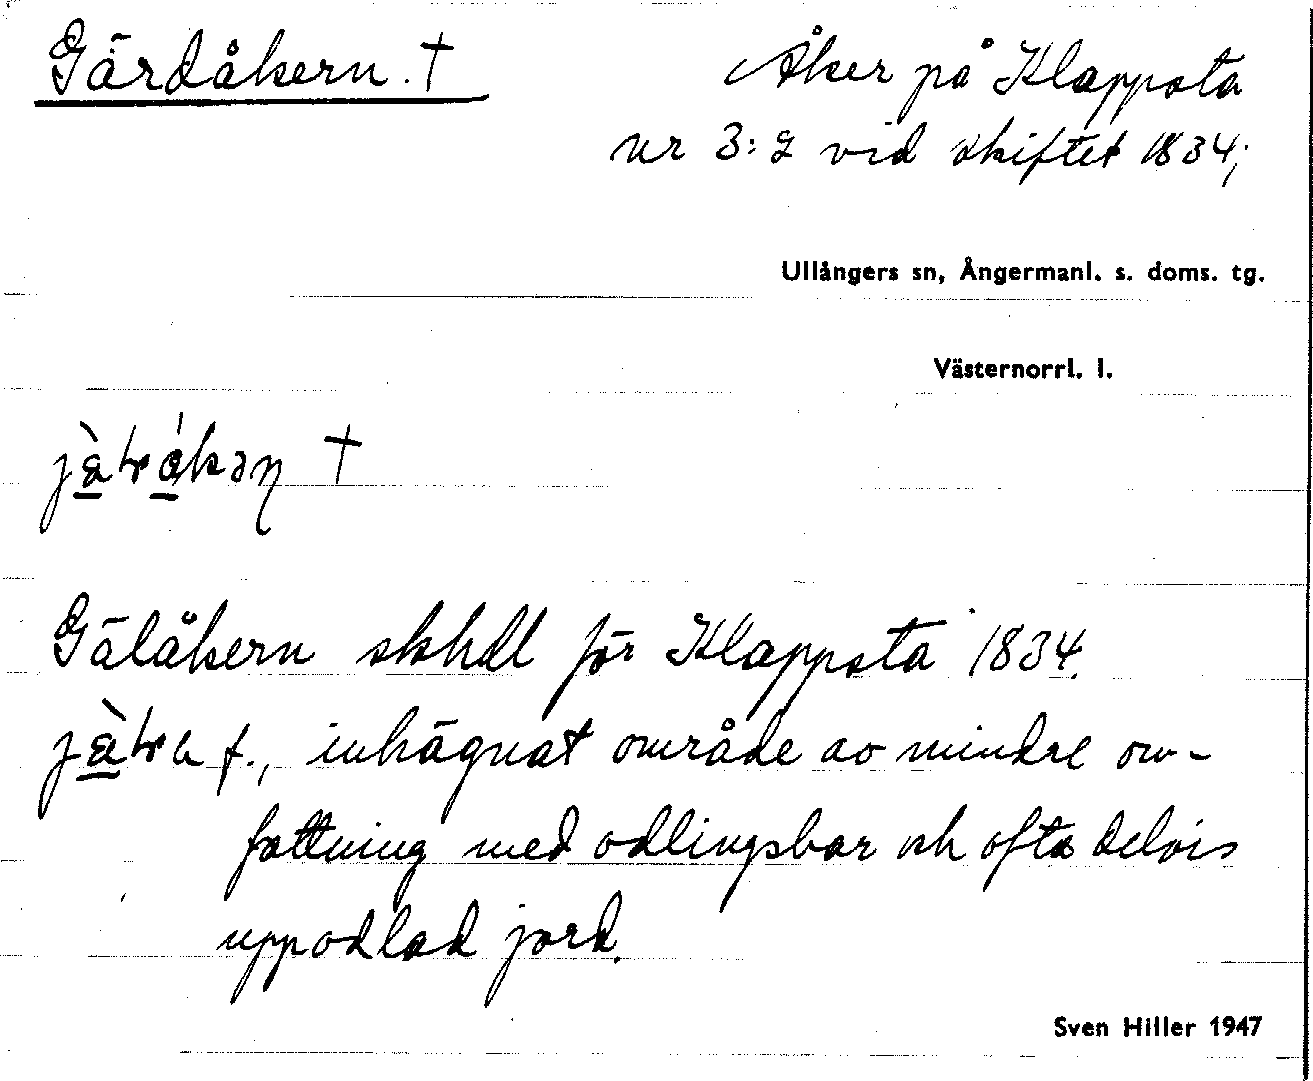 Gärdåkern. †
Åker på Klappsta
nr 3:2 vid skiftet 1834;
Ullångers sn, Ångermanl. s. doms. tg.
Västernorrl. l.
†
Gäläkern skhdl för Klappsta 1834.
f., inhägnat område av mindre om-
fattning med odlingsbar och ofta delvis
uppodlad jord.
Sven Hiller 1947